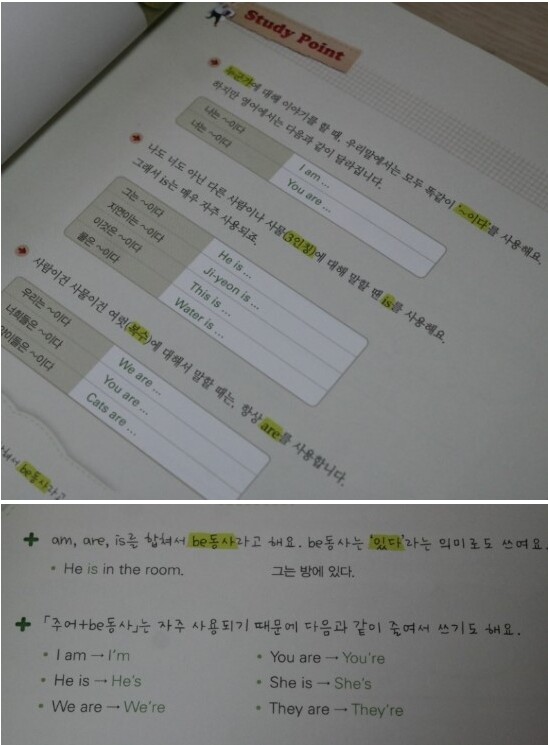 Study Point
누군가에 대해 이야기를 할 때, 우리말에서는 모두 똑같이 '~이다'를 사용해요.
하지만 영어에서는 다음과 같이 달라집니다.
나는 ~이다 I am ...
너는 ~이다 You are ...
나도 너도 아닌 다른 사람이나 사물(3인칭)에 대해 말할 땐 is를 사용해요.
그래서 is는 매우 자주 사용되죠.
그는 ~이다 He is ...
지연이는 ~이다 Ji-yeon is ...
이것은 ~이다 This is ...
물은 ~이다 Water is ...
사람이건 사물이건 여럿(복수)에 대해서 말할 때는, 항상 are를 사용합니다.
우리는 ~이다 We are ...
너희들은 ~이다 You are ...
이들은 ~이다 Cats are ...
be동사라고
am, are, is를 합쳐서 be동사라고 해요. be동사는 '있다'라는 의미로도 쓰여요.
• He is in the room. 그는 방에 있다.
「주어+be동사」는 자주 사용되기 때문에 다음과 같이 줄여서 쓰기도 해요.
• I am → I'm • You are → You're
• He is → He's • She is → She's
• We are → We're • They are → They're